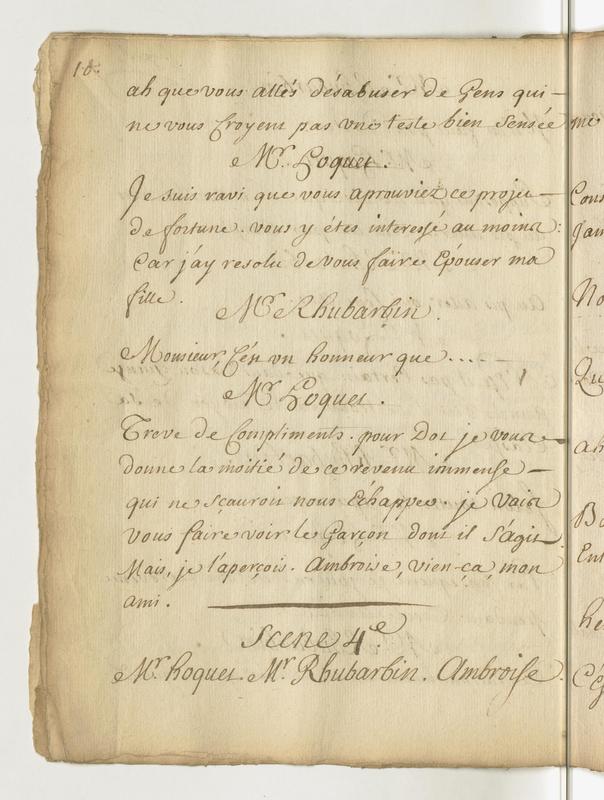 10.
ah que vous allés désabuser de Gens qui —
ne vous Croyent pas une teste bien Sensée
Mr. Hoquet.
Je suis ravi que vous aprouviez ce projet —
de fortune. vous y étes interessé au moins:
Car j'ay resolu de vous faire Epouser ma
fille.
Mr. Rhubarbin.
Monsieur, C'ést un honneur que ....
Mr. Hoquet.
Treve de Compliments. pour Dot je vous —
donne la moitié de ce revenu immense —
qui ne sçauroit nous Echapper. je vais
vous faire voir le Garçon dont il S'agit.
Mais, je l'aperçois. Ambroise, vien-ça, mon
ami.
Scene 4e.
Mr. hoquet. Mr. Rhubarbin. Ambroise.